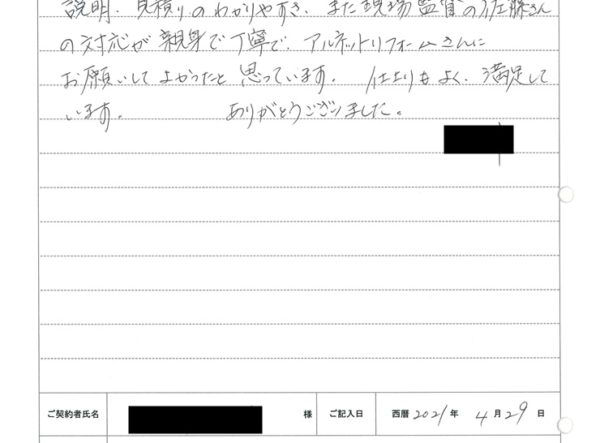 説明、見積りのわかりやすさ、また現場監督の佐藤さん
の対応が親身で丁寧で、アルネットリフォームさんに
お願いしてよかったと思っています。 仕上りもよく、満足して
います。 ありがとうございました。
ご契約者氏名 様 ご記入日 西暦 2021 年 4 月 29 日